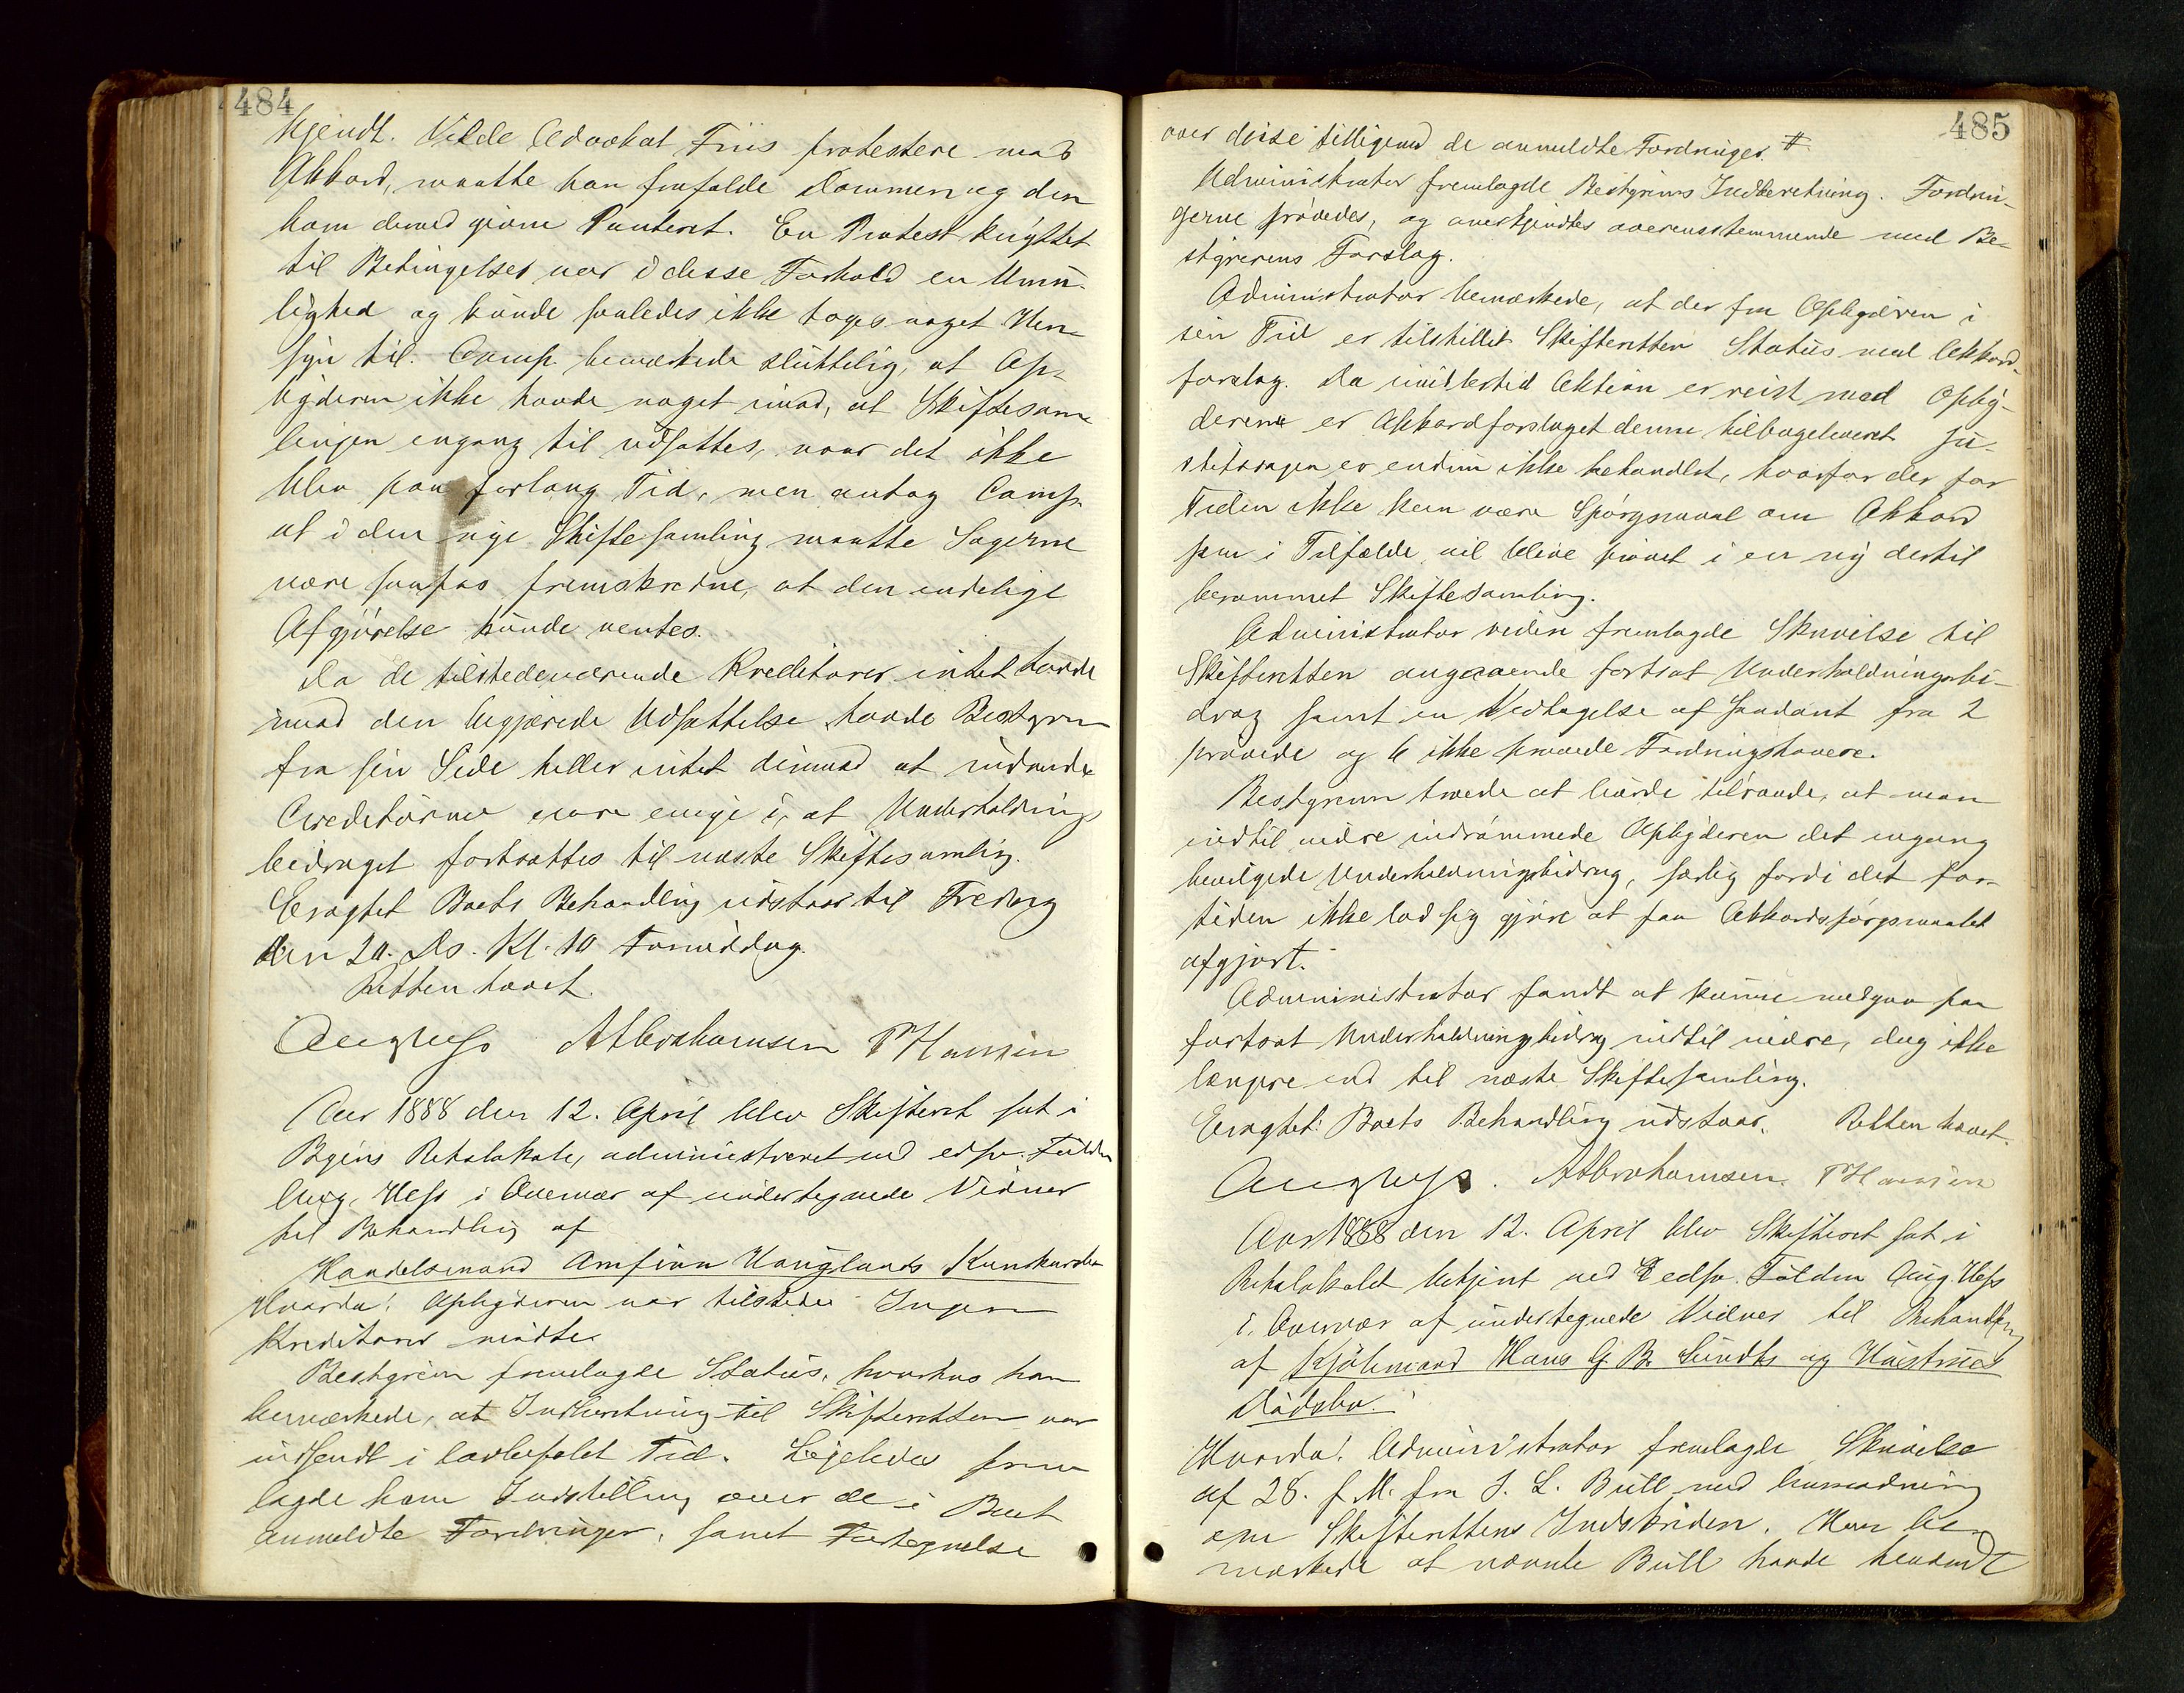 484
kjendt. Vilde Advokat Friis protestere mod
Akkord, maatte han frafalde Dommen og den
ham derved givne Panteret. En Protest knyttet
til Betingelser var i disse Forhold en Umu-
lighed og kunde saaledes ikke toges noget Hen-
syn til. Comp. bemærkede sluttelig, at Op-
byderen ikke havde noget imod, at Skiftesam
lingen engang til udsattes, naar det ikke
blev paa forlang Tid, men antog Comp.
at i den nye Skiftesamling maatte Sagerne
være saapas fremskredne, at den endelige
Afgjørelse kunde ventes.
Da de tilstedeværende Kreditorer intet havde
imod den begjærede Udsættelse havde Bestyren
fra sin Side heller intet derimod at indvende
Creditorne vare enige i, at Underholdnings
bidraget fortsattes til næste Skiftesamling.
Eragtet Boets Behandling udstaar til Fredag
den 20. Ds. Kl. 10 Formiddag.
Retten hævet.
Aug Hess Abrahamsen P Hansen
Aar 1888 den 12. April blev Skifteret sat i
Byens Retslokale, administreret ved edsv. Fuldm
Aug. Hess i Overvær af undertegnede Vidner
til Behandling af
Handelsmand Amfinn Hauglands Konkursbo
Hvorda! Opbyderen var tilstede. Ingen
Kreditorer mødte.
Bestyreren fremlagde Status, hvorhos han
bemærkede, at Indberetning til Skifteretten var
indsendt i lovbefalet Tid. Ligeledes frem
lagde han Indstilling over de i Boet
anmeldte Fordringer, samt Fortegnelse
485
over disse tilligemed de anmeldte Fordringer. #
Administrator fremlagde Bestyrerens Indberetning. Fordrin-
gerne prøvedes, og anerkjendtes overensstemmende med Be-
styrerens Forslag.
Administrator bemærkede, at der fra Opbyderen i
sin Tid er tilstillet Skifteretten Status med Akkord-
forslag. Da imidlertid Aktion er reist mod Opby-
deren er Akkordforslaget denne tilbageleveret. Ju-
stitssagen er endnu ikke behandlet, hvorfor der for
Tiden ikke kan være Spørgsmaal om Akkord
som i Tilfælde vil blive prøvet i en ny dertil
berammet Skiftesamling.
Administrator videre fremlagde Skrivelse til
Skifteretten angaaende fortsat Underholdningsbi-
drag samt en Vedtagelse af saadant fra 2
prøvede og 6 ikke prøvede Fordringshavere.
Bestyreren troede at burde tilraade, at man
indtil videre indrømmede Opbyderen det engang
bevilgede Underholdningsbidrag, særlig fordi det for
tiden ikke lod sig gjøre at faa Akkordspørgsmaalet
afgjort.
Administrator fandt at kunne medgaa paa
fortsat Underholdningsbidrag indtil videre, dog ikke
længere end til næste Skiftesamling.
Eragtet: Boets Behandling udstaar. Retten hævet.
Aug Hess. Abrahamsen. P Hansen
Aar 1888 den 12. April blev Skifteret sat i
Retslokalet betjent ved edsv. Fuldm Aug. Hess
i Overvær af undertegnede Vidner til Behandling
af Kjøbmand Hans G. B. Sundts og Hustrues
Dødsbo.
Hvorda! Administrator fremlagde Skrivelse
af 28. f. M. fra J. L. Bull med Anmodning
om Skifterettens Indskriden. Han be
mærkede at nævnte Bull havde henvendt